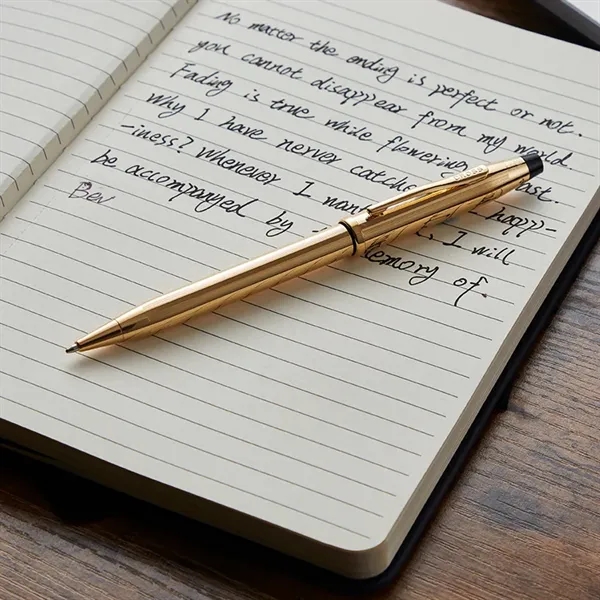 No matter the ending is perfect or not.
you cannot disappear from my world.
Fading is true while flewering past.
Why I have nerver catche happ-
-iness? Whenever I want I will
be accompanyed by memory of.
Dev
CROSS